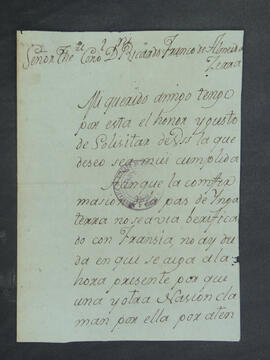 Señor The. Coro. D. Ricardo Franco de Almeida
Serra
Mi querido amigo tengo
por esta el honor y gusto
de Solisitar de Vss la que
deseo sea mui cumplida
Aunque la comfir
masion de la pas de Inga
terra no se avia berifica
do con Fransia, no ay du
da en qui se aiga a la
hora presente por que
una y otra Nasión cla
man por ella por aten